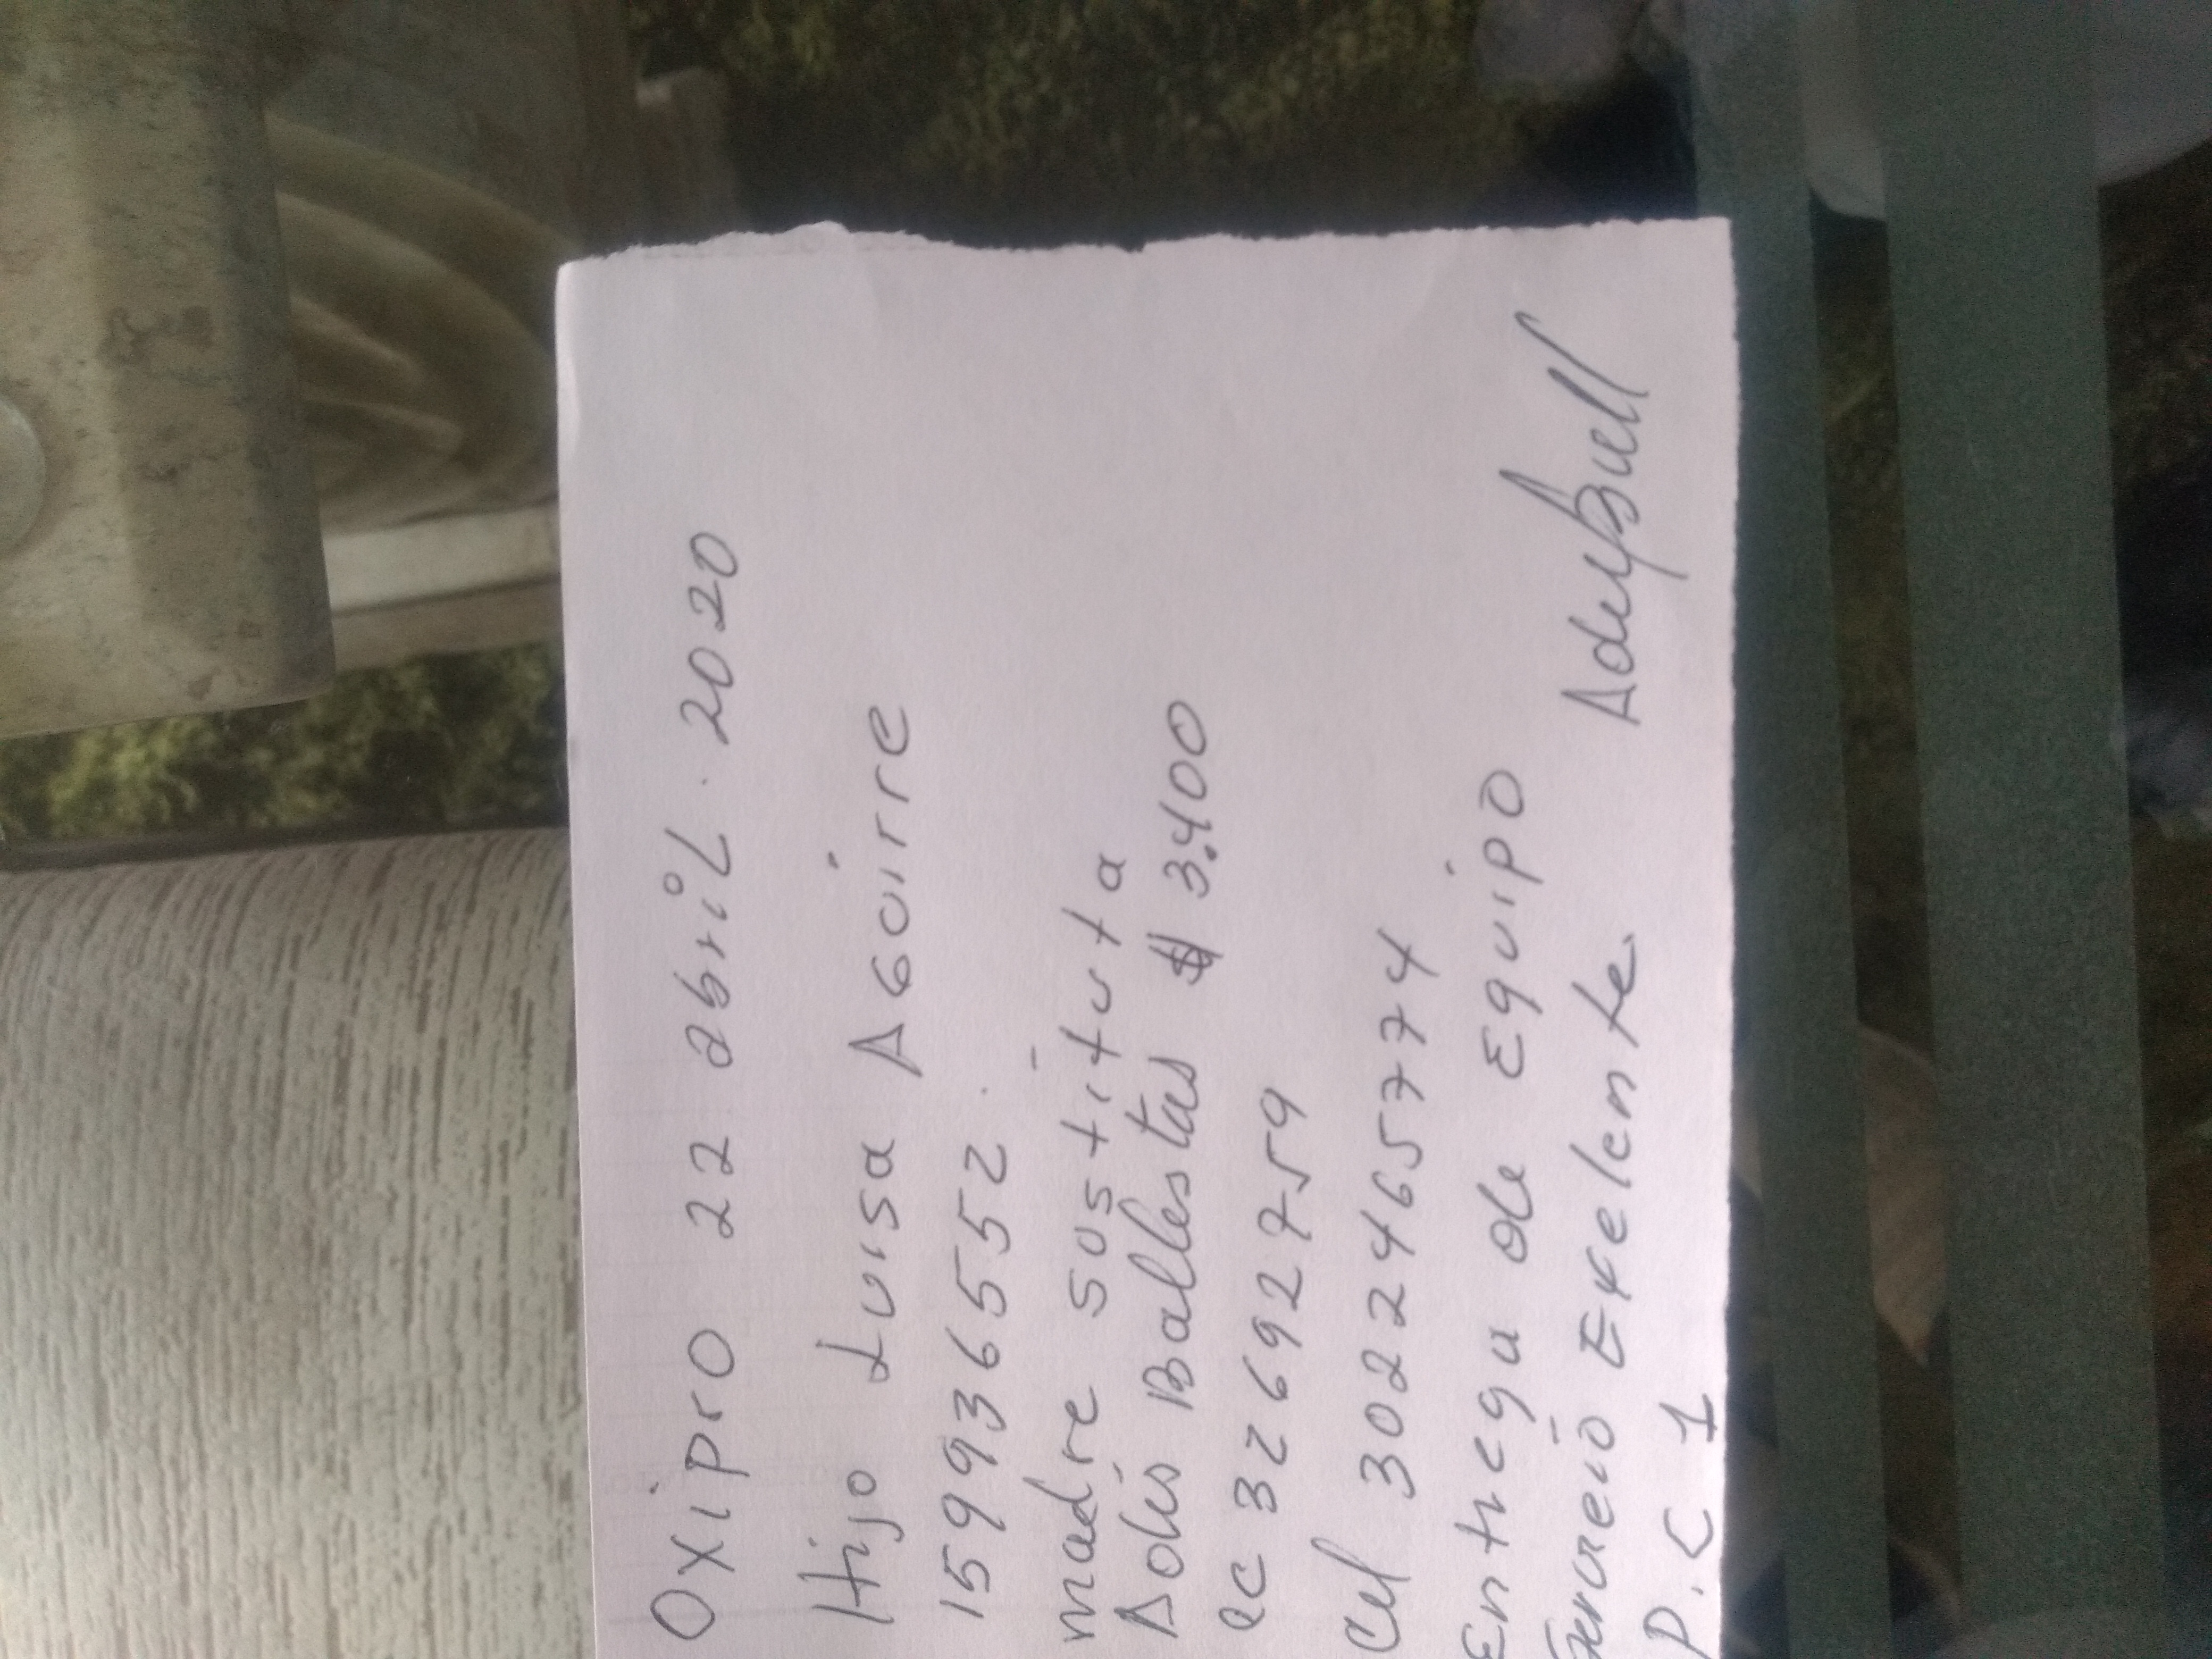 OXIPRO 22 abril. 2020
Hijo Luisa AGuirre
159936552.
madre sustituta
Adis Ballestas $ 3.400
cc 32692759
Cel 3022465774
Entrega de Equipo
Exelente.
P.C 1